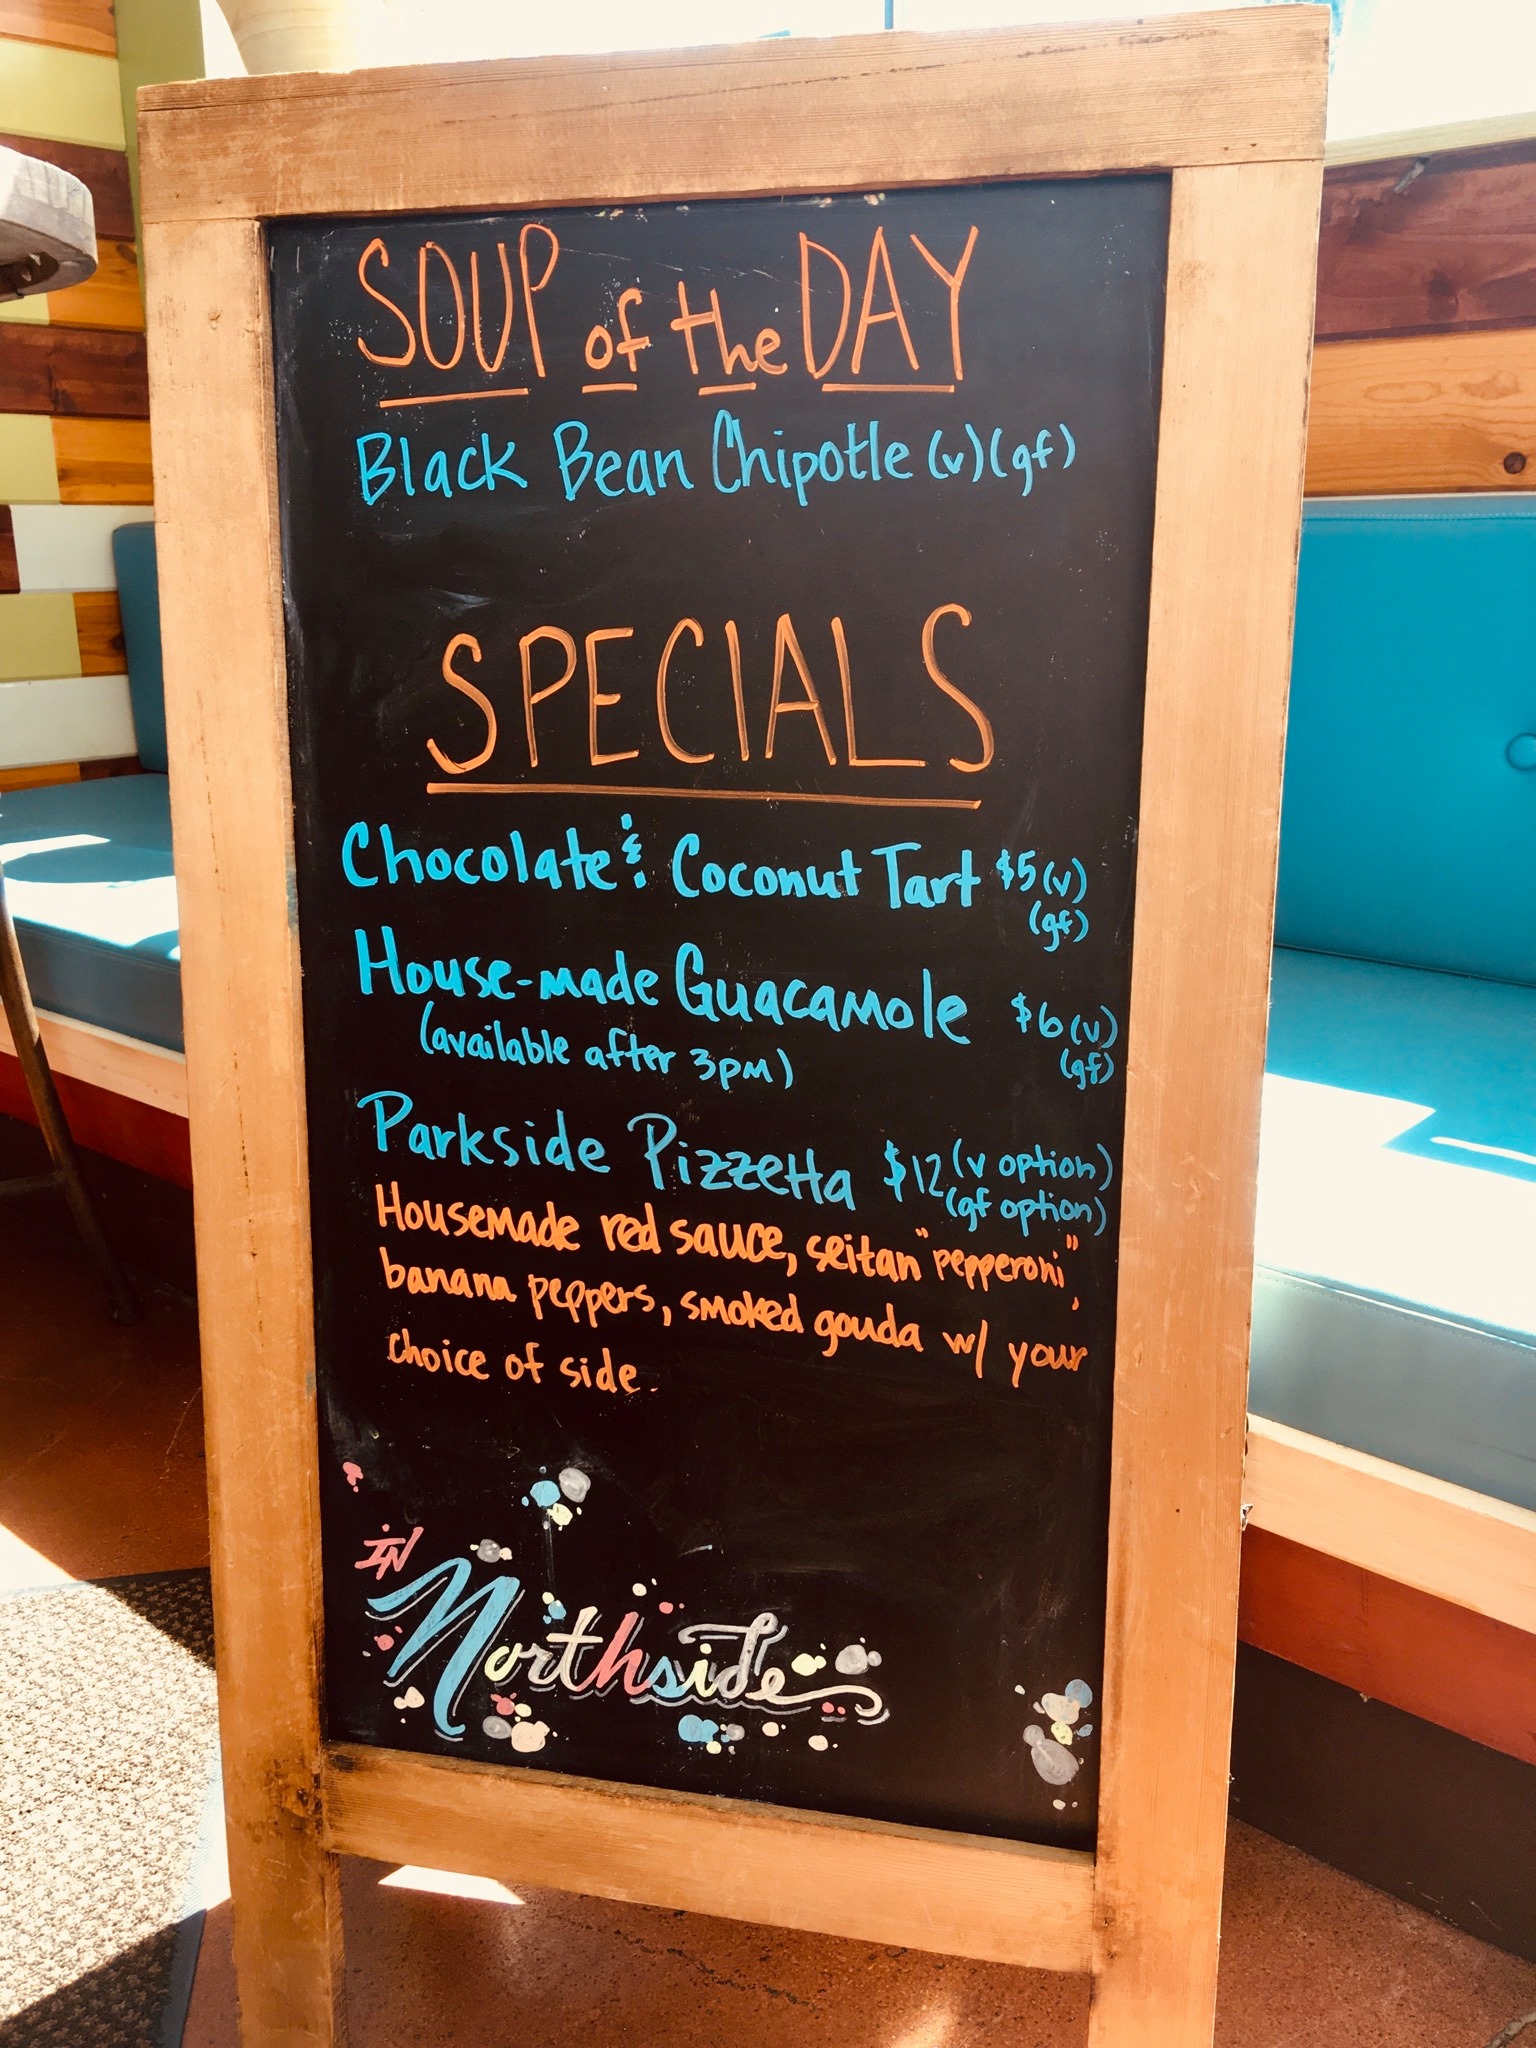 SOUP of the DAY
Black Bean Chipotle (v) (gf)
SPECIALS
Chocolate & Coconut Tart $5 (v)
(gf)
House-made Guacamole $6 (v)
(available after 3pm) (gf)
Parkside Pizzetta $12 (v option)
(gf option)
Housemade red sauce, seitan "pepperoni",
banana peppers, smoked gouda w/ your
choice of side.
IN
Northside